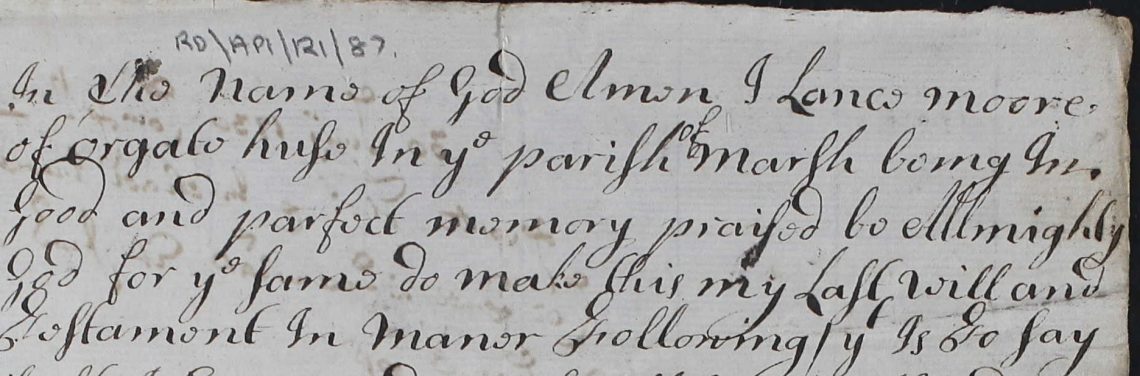 RD/AP1/121/87.
In the Name of God Amen I Lance moore
of orgate huse In yᵉ parish of Marsh being In
good and parfect memory praised be Allmighty
God for yᵉ same do make this my Last will and
Testament In Maner Following / yᵗ Is To say